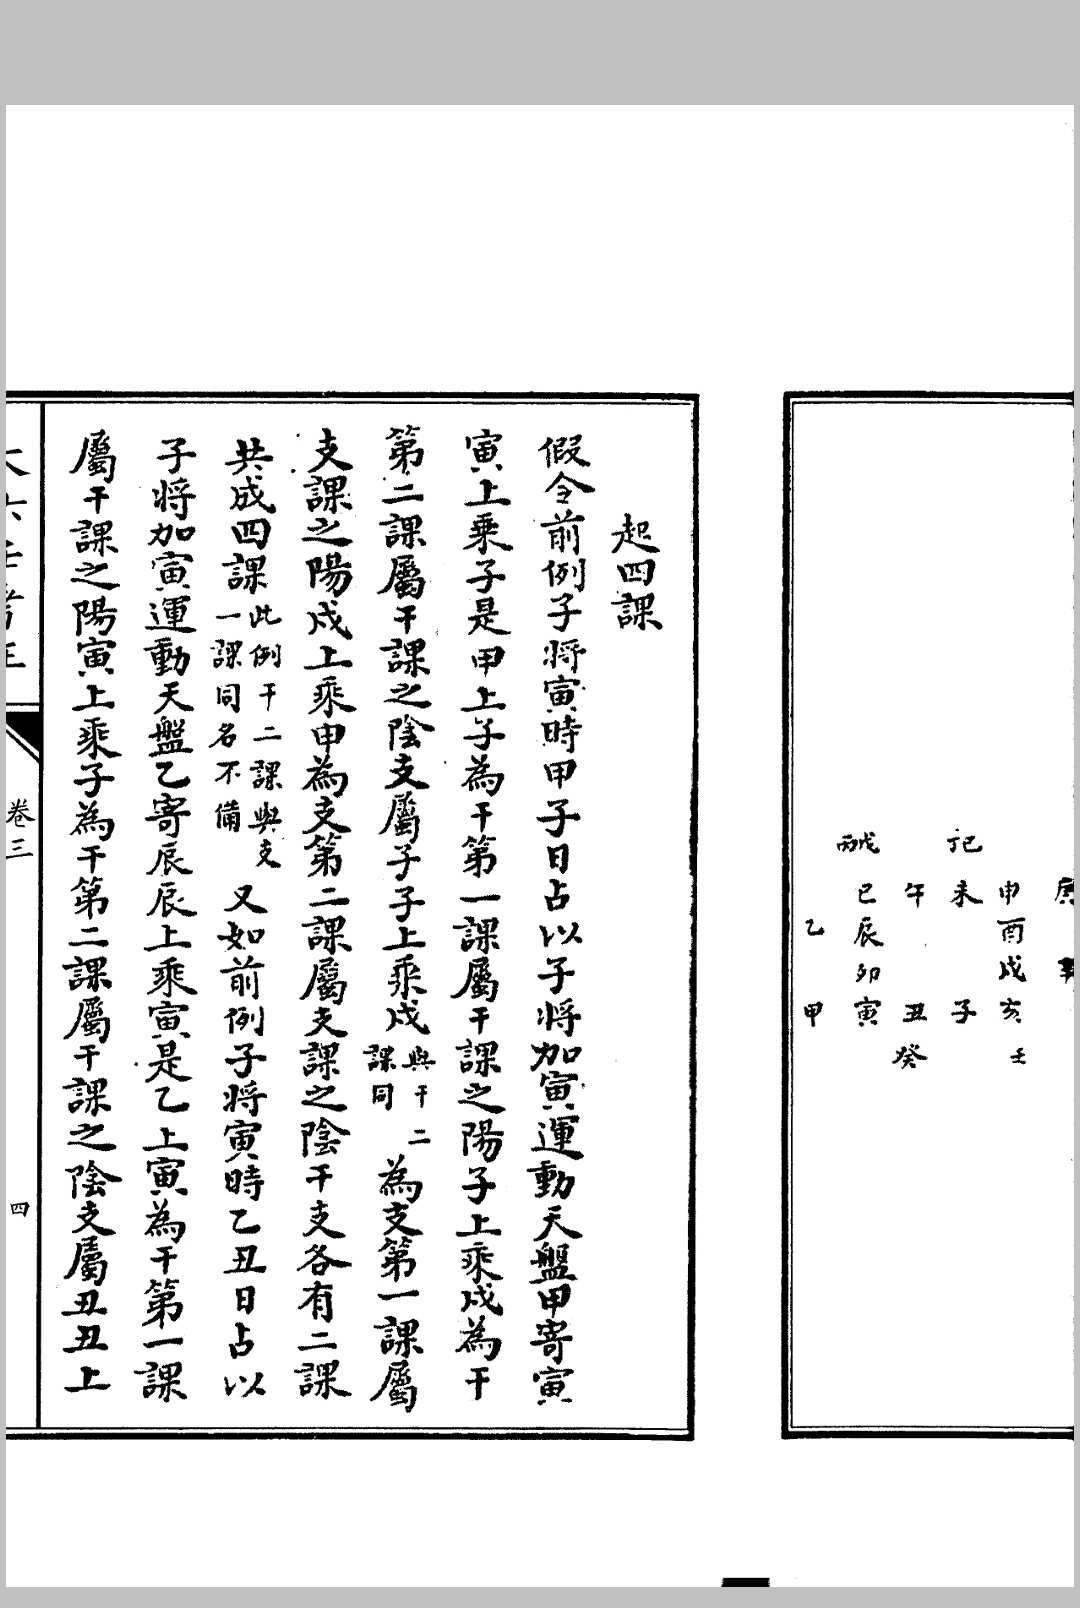 申酉戌亥 壬
丁己 未 子
午 丑 癸
丙戊 巳辰卯寅
乙 甲
起四課
假令前例子將寅時甲子日占以子將加寅運動天盤甲寄寅
寅上乘子是甲上子為干第一課屬干課之陽子上乘戌為干
第二課屬干課之陰支屬子子上乘戌與干二課同為支第一課屬
支課之陽戌上乘申為支第二課屬支課之陰干支各有二課
共成四課此例干二課與支一課同名不備又如前例子將寅時乙丑日占以
子將加寅運動天盤乙寄辰辰上乘寅是乙上寅為干第一課
屬干課之陽寅上乘子為干第二課屬干課之陰支屬丑丑上
卷三
四